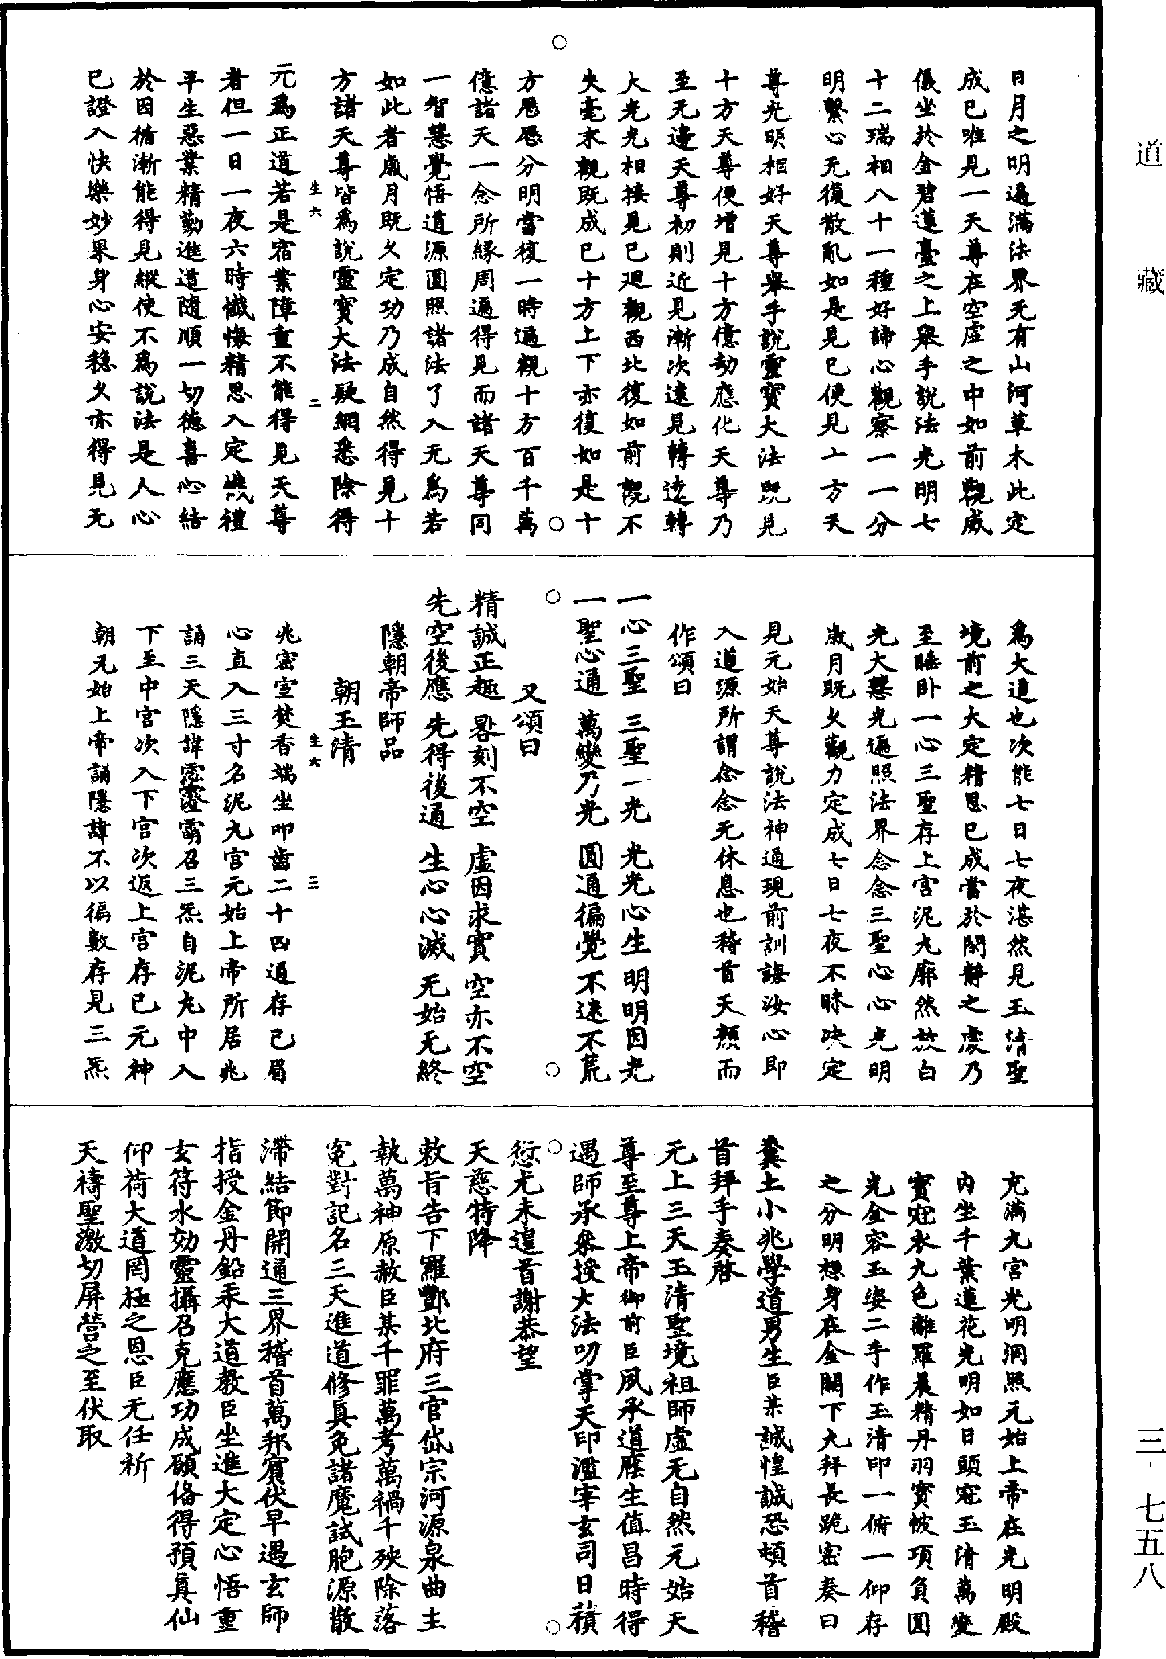 道藏
三·七五八
日月之明遍滿法界无有山河草木此定
成已唯見一天尊在空虛之中如前觀威
儀坐於金碧蓮臺之上舉手說法光明七
十二瑞相八十一種好諦心觀察一一分
明繫心无復散亂如是見已便見上方天
尊光明相好天尊舉手說靈寶大法既見
十方天尊便增見十方億劫應化天尊乃
至无邊天尊初則近見漸次遠見轉遠轉
大光光相接見已迴觀西北復如前觀不
失毫末觀既成已十方上下亦復如是十
方悉悉分明當復一時遍觀十方百千萬
億諸天一念所緣周遍得見而諸天尊同
一智慧覺悟道源圓照諸法了入无為若
如此者歲月既久定功乃成自然得見十
方諸天尊皆為說靈寶大法疑網悉除得
生六 二
元為正道若是宿業障重不能得見天尊
者但一日一夜六時懺悔精思入定遶禮
平生惡業精勤進道隨順一切德喜心結
於因循漸能得見縱使不為說法是人心
已證入快樂妙果身心安穩久亦得見无
為大道也次能七日七夜湛然見玉清聖
境前之大定精思已成當於閑靜之處乃
至睡卧一心三聖存上宮泥丸廓然放白
光大慧光遍照法界念念三聖心心光明
歲月既久觀力定成七日七夜不昧決定
見元始天尊說法神通現前訓誨汝心即
入道源所謂念念无休息也稽首天顏而
作頌曰
一心三聖 三聖一光 光光心生 明明因光
一聖心通 萬變乃光 圓通徧覺 不迷不荒
又頌曰
精誠正趣 晷刻不空 虛因求實 空亦不空
先空後應 先得後通 生心心滅 无始无終
隱朝帝師品
朝玉清
生六 三
兆密室焚香端坐叩齒二十四通存己眉
心直入三寸名泥丸宮元始上帝所居兆
誦三天隱諱召三炁自泥丸中入
下至中宮次入下宮次返上宮存己元神
朝元始上帝誦隱諱不以徧數存見三炁
充滿九宮光明洞照元始上帝在光明殿
內坐千葉蓮花光明如日頭冠玉清萬變
寶冠衣九色離羅晨精丹羽寶帔項負圓
光金容玉姿二手作玉清印一俯一仰存
之分明想身在金闕下大拜長跪密奏曰
糞土小兆學道男生臣某誠惶誠恐頓首稽
首拜手奏啓
元上三天玉清聖境祖師虛无自然元始天
尊至尊上帝御前臣夙承道廕生值昌時得
遇師承參授大法叨掌天印濫宰玄司日積
愆尤未遑首謝恭望
天慈特降
敕旨告下羅酆北府三官岱宗河源泉曲主
執萬神原赦臣某千罪萬考萬禍千殃除落
冤對記名三天進道修真免諸魔試胞源散
滯結節開通三界稽首萬邦賓伏早遇玄師
指授金丹鉛汞大道教臣坐進大定心悟重
玄符水効靈攝召克應功成願俻得預真仙
仰荷大道罔極之恩臣无任祈
天禱聖激切屏營之至伏取